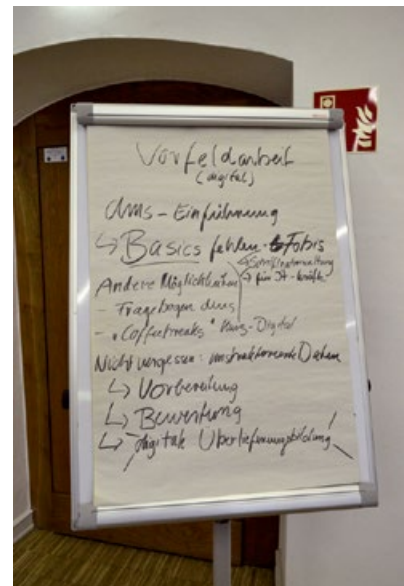 Vorfeldarbeit
(digital)
dms - Einführung
↳ Basics fehlen Fobis
Schriftgutverwaltung
für IT - Kräfte
Andere Möglichkeiten
- Fragebogen dms
- "Coffeebreaks" Digital
Nicht vergessen: unstrukturierte Daten
↳ Vorbereitung
↳ Bewertung
↳ digitale Überlieferungsbildung